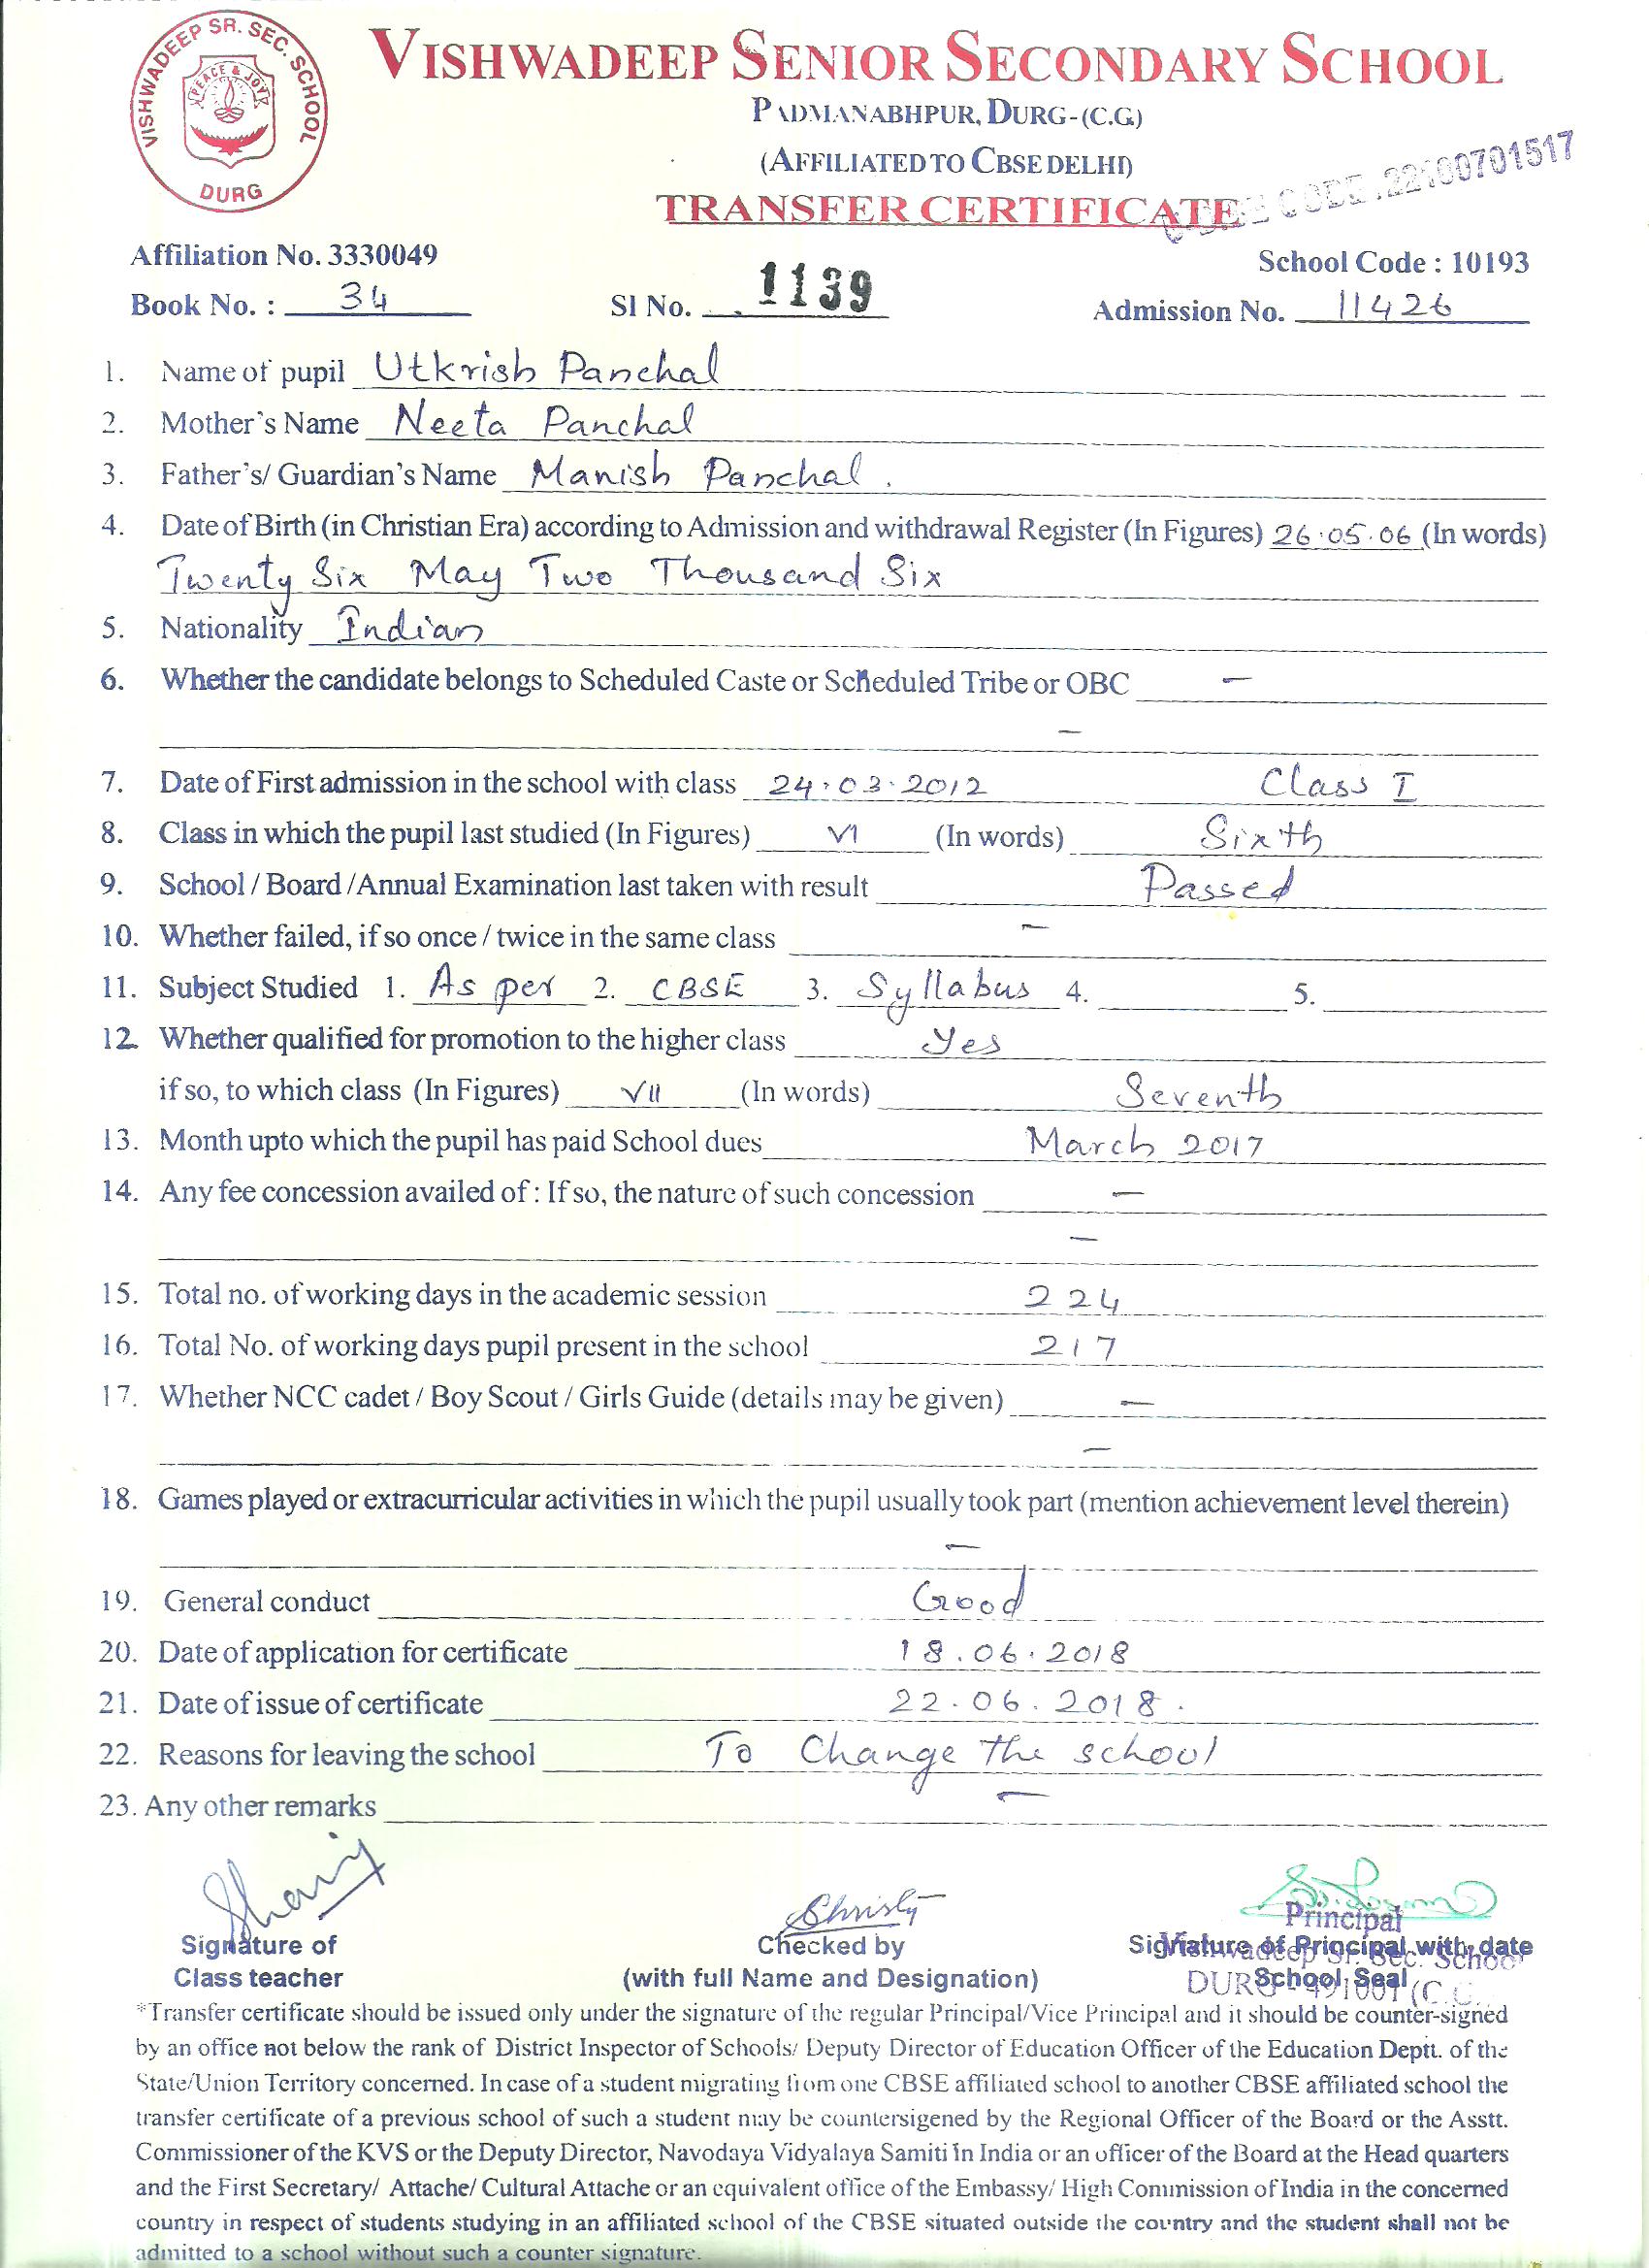 VISHWADEEP SR. SEC. SCHOOL
PEACE & JOY
DURG
VISHWADEEP SENIOR SECONDARY SCHOOL
PADMANABHPUR, DURG-(C.G.)
(AFFILIATED TO CBSE DELHI)
CODE .22100701517
TRANSFER CERTIFICATE
Affiliation No. 3330049
School Code : 10193
Book No. : 34 Sl No. 1139 Admission No. 11426
1. Name of pupil Utkrish Panchal
2. Mother's Name Neeta Panchal
3. Father's/ Guardian's Name Manish Panchal .
4. Date of Birth (in Christian Era) according to Admission and withdrawal Register (In Figures) 26.05.06 (In words)
Twenty Six May Two Thousand Six
5. Nationality Indian
6. Whether the candidate belongs to Scheduled Caste or Scheduled Tribe or OBC —
—
7. Date of First admission in the school with class 24.03.2012 Class I
8. Class in which the pupil last studied (In Figures) VI (In words) Sixth
9. School / Board /Annual Examination last taken with result Passed
10. Whether failed, if so once / twice in the same class —
11. Subject Studied 1. As per 2. CBSE 3. Syllabus 4. 5.
12. Whether qualified for promotion to the higher class Yes
if so, to which class (In Figures) VII (In words) Seventh
13. Month upto which the pupil has paid School dues March 2017
14. Any fee concession availed of : If so, the nature of such concession —
—
15. Total no. of working days in the academic session 224
16. Total No. of working days pupil present in the school 217
17. Whether NCC cadet / Boy Scout / Girls Guide (details may be given) —
—
18. Games played or extracurricular activities in which the pupil usually took part (mention achievement level therein)
—
19. General conduct Good
20. Date of application for certificate 18.06.2018
21. Date of issue of certificate 22.06.2018.
22. Reasons for leaving the school To Change the school
23. Any other remarks —
Christy
Principal
Signature of Checked by Signature of Principal with date
Vishwadeep Sr. Sec. School
Class teacher (with full Name and Designation) School Seal
DURG - 491001 (C.G.
*Transfer certificate should be issued only under the signature of the regular Principal/Vice Principal and it should be counter-signed
by an office not below the rank of District Inspector of Schools/ Deputy Director of Education Officer of the Education Deptt. of the
State/Union Territory concerned. In case of a student migrating from one CBSE affiliated school to another CBSE affiliated school the
transfer certificate of a previous school of such a student may be countersigened by the Regional Officer of the Board or the Asstt.
Commissioner of the KVS or the Deputy Director, Navodaya Vidyalaya Samiti in India or an officer of the Board at the Head quarters
and the First Secretary/ Attache/ Cultural Attache or an equivalent office of the Embassy/ High Commission of India in the concerned
country in respect of students studying in an affiliated school of the CBSE situated outside the country and the student shall not be
admitted to a school without such a counter signature.